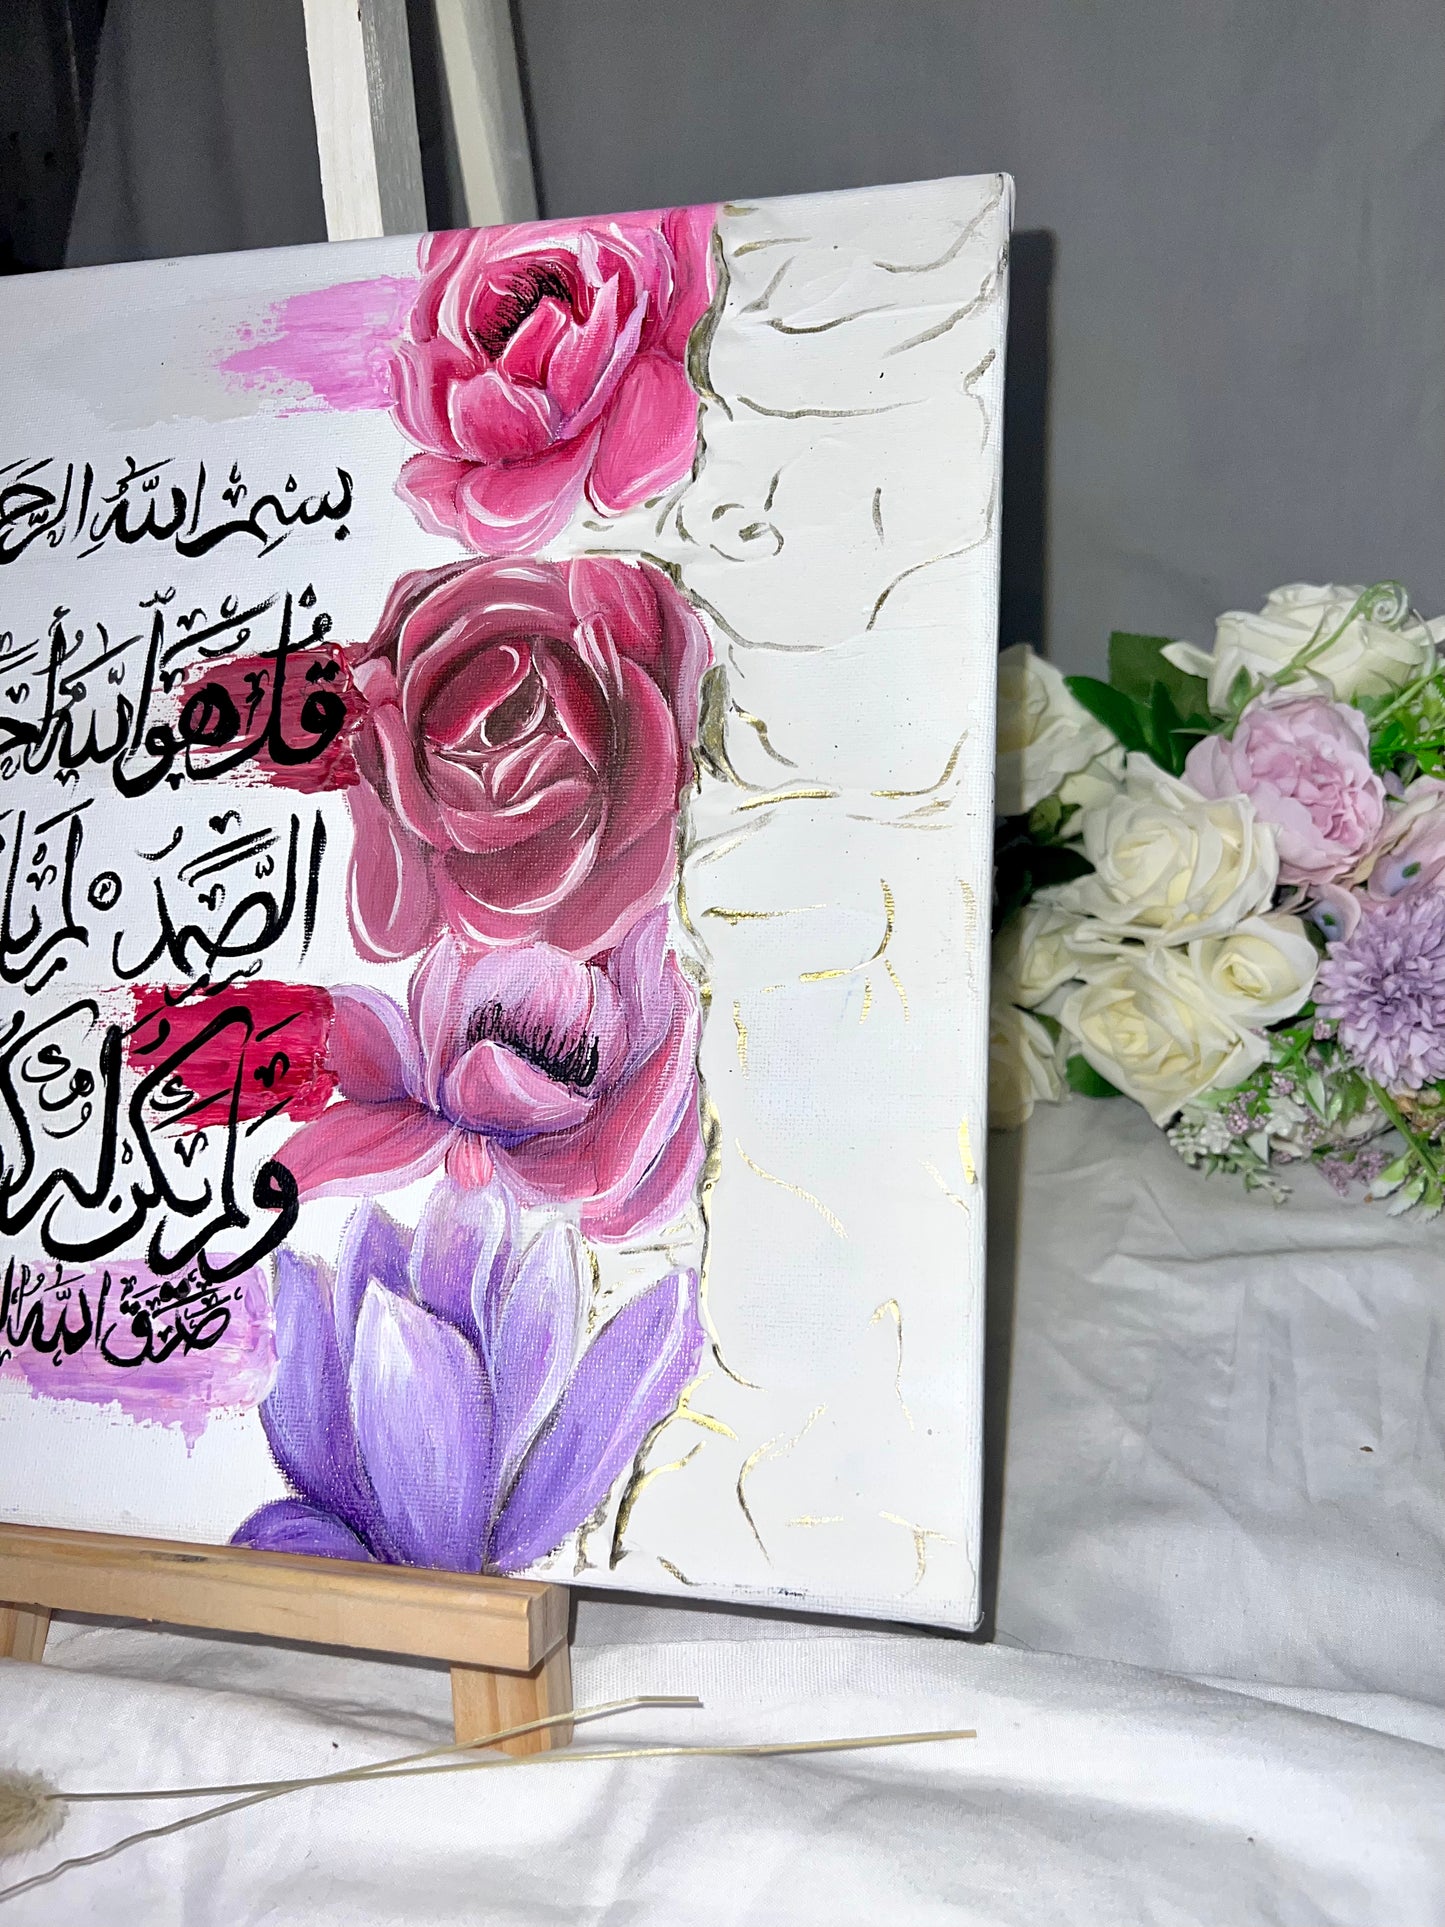 بِسْمِ اللَّهِ الرَّحـ
قُلْ هُوَ اللَّهُ أَحَـ
الصَّمَدُ ۝ لَمْ يَلـ
وَلَمْ يَكُنْ لَهُ كُـ
صَدَقَ اللَّهُ الـ